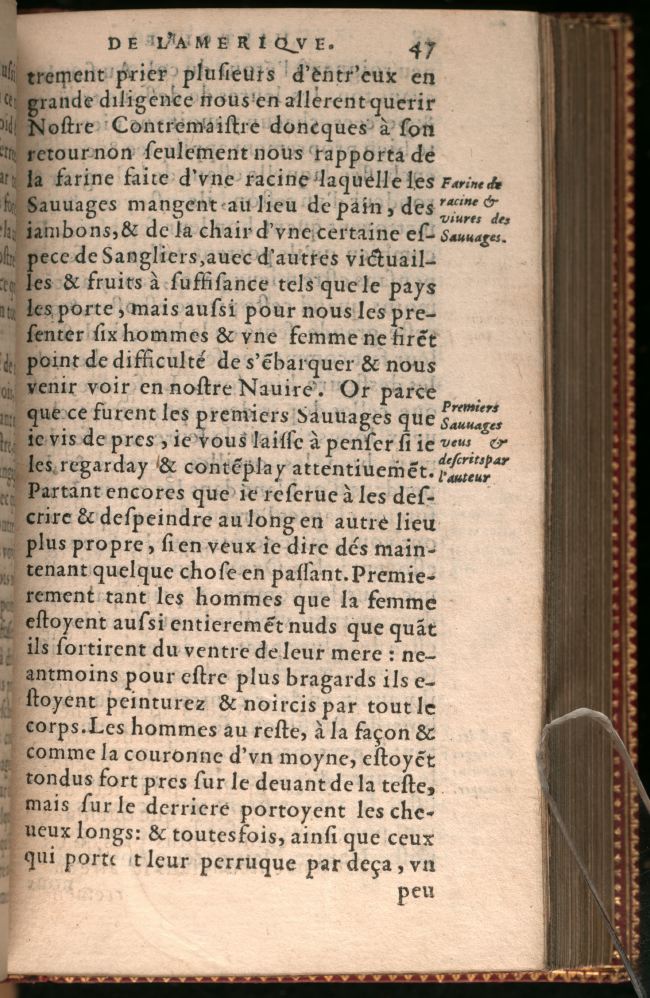 DE L'AMERIQVE. 47
trement prier plusieurs d'entr'eux en
grande diligence nous en allerent querir
Noſtre Contremaiſtre doncques à ſon
retour non ſeulement nous rapporta de
la farine faite d'vne racine laquelle les
Sauuages mangent au lieu de pain, des
iambons, & de la chair d'vne certaine eſ-
pece de Sangliers, auec d'autres victuail-
les & fruits à ſuffiſance tels que le pays
les porte, mais auſsi pour nous les pre-
ſenter ſix hommes & vne femme ne firẽt
point de difficulté de s'ẽbarquer & nous
venir voir en noſtre Nauire. Or parce
que ce furent les premiers Sauuages que
ie vis de pres, ie vous laiſſe à penſer ſi ie
les regarday & contẽplay attentiuemẽt.
Partant encores que ie reſerue à les deſ-
crire & deſpeindre au long en autre lieu
plus propre, ſi en veux ie dire dés main-
tenant quelque choſe en paſſant. Premie-
rement tant les hommes que la femme
eſtoyent auſsi entieremẽt nuds que quãt
ils ſortirent du ventre de leur mere : ne-
antmoins pour eſtre plus bragards ils e-
ſtoyent peinturez & noircis par tout le
corps. Les hommes au reſte, à la façon &
comme la couronne d'vn moyne, eſtoyẽt
tondus fort pres ſur le deuant de la teſte,
mais ſur le derriere portoyent les che-
ueux longs: & toutesfois, ainſi que ceux
qui porte t leur perruque par deça, vn
peu
Farine de
racine &
viures des
Sauuages.
Premiers
Sauuages
veus &
deſcrits par
l'auteur